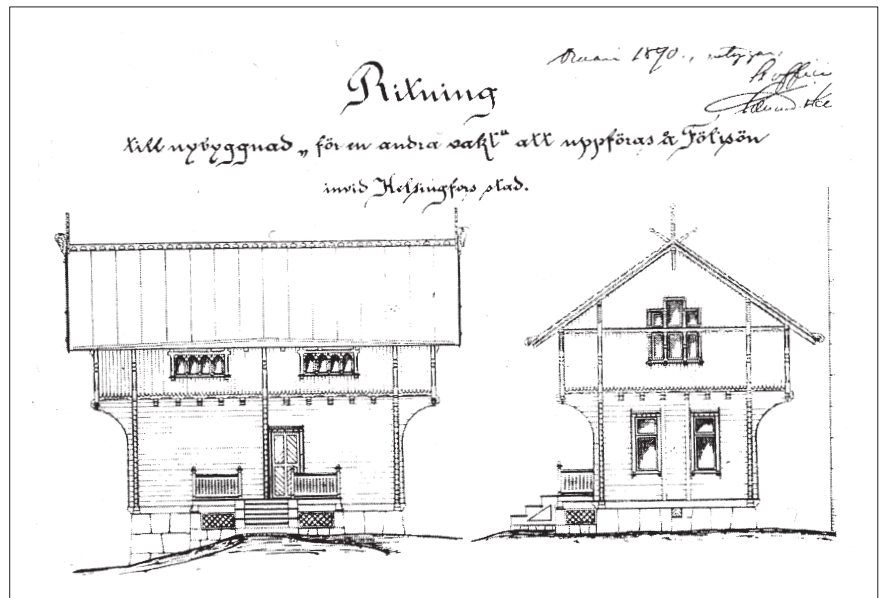 1890.
Ritning
till nybyggnad „för en andra vakt“ att uppföras å Fölisön
invid Helsingfors stad.